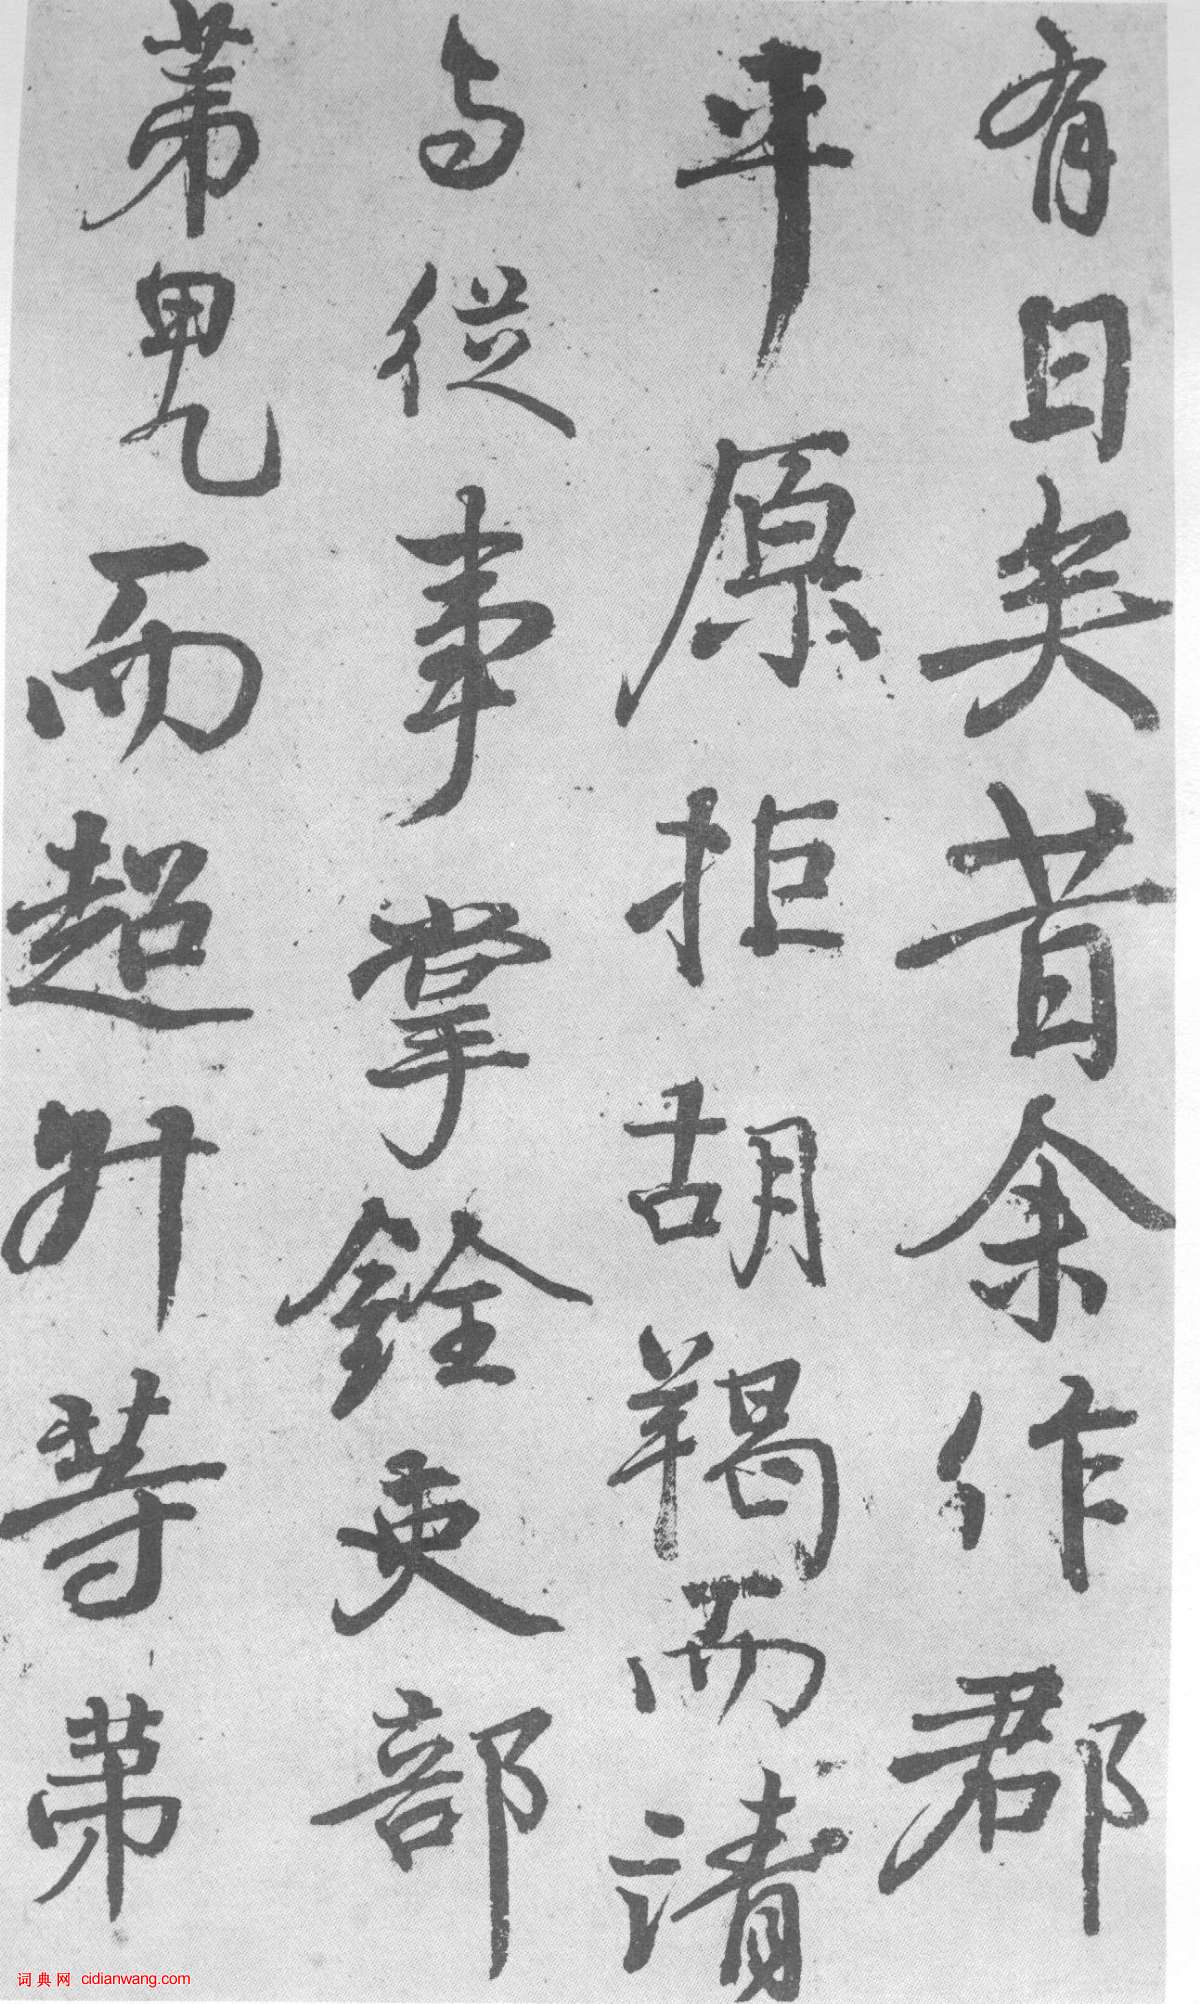 有日矣昔余作郡
平原拒胡羯而請
与從事掌銓吏部
苐甲乙而超升等苐
词典网 cidianwang.com